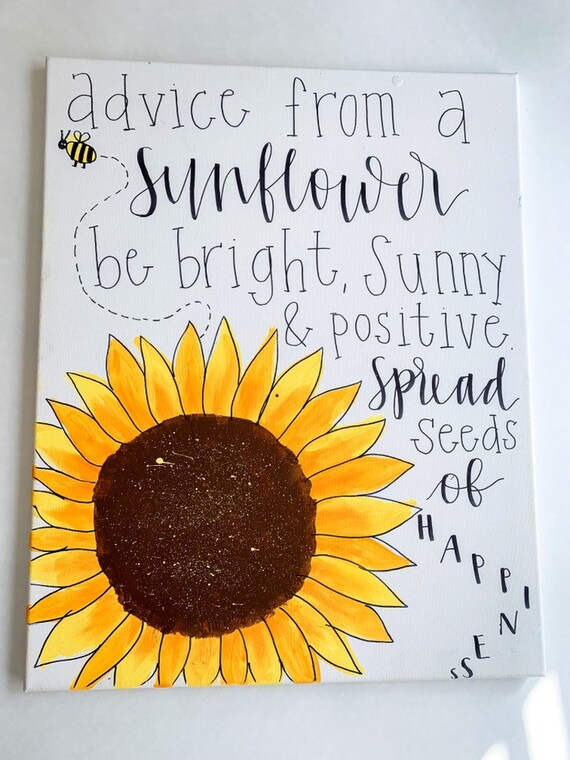 advice from a
sunflower
be bright, sunny
& positive.
spread
seeds
of
HAPPINESS